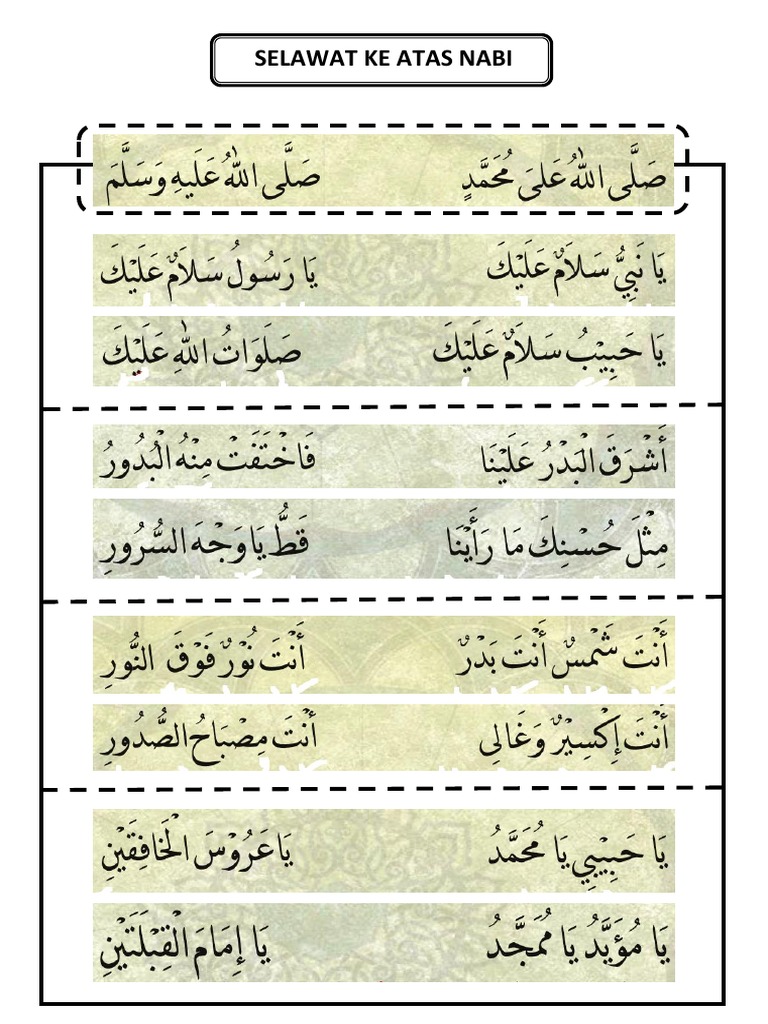 SELAWAT KE ATAS NABI
صَلَّى اللهُ عَلىَ مُحَمَّدٍ صَلَّى اللهُ عَلَيهِ وَسَلَّمَ
يَا نَبِيُّ سَلاَمٌ عَلَيْكَ يَا رَسُولُ سَلاَمٌ عَلَيْكَ
يَا حَبِيْبُ سَلاَمٌ عَلَيْكَ صَلَوَاتُ اللهِ عَلَيْكَ
أَشْرَقَ الْبَدْرُ عَلَيْنَا فَاخْتَفَتْ مِنْهُ الْبُدُورُ
مِثْلَ حُسْنِكَ مَا رَأَيْنَا قَطُّ يَا وَجْهَ السُّرُورِ
أَنْتَ شَمْسٌ أَنْتَ بَدْرٌ أَنْتَ نُوْرٌ فَوْقَ النُّورِ
أَنْتَ إِكْسِيْرٌ وَغَالِى أَنْتَ مِصْبَاحُ الصُّدُورِ
يَا حَبِيْبِي يَا مُحَمَّدُ يَا عَرُوْسَ الْخَافِقَيْنِ
يَا مُؤَيَّدُ يَا مُمَجَّدُ يَا إِمَامَ الْقِبْلَتَيْنِ